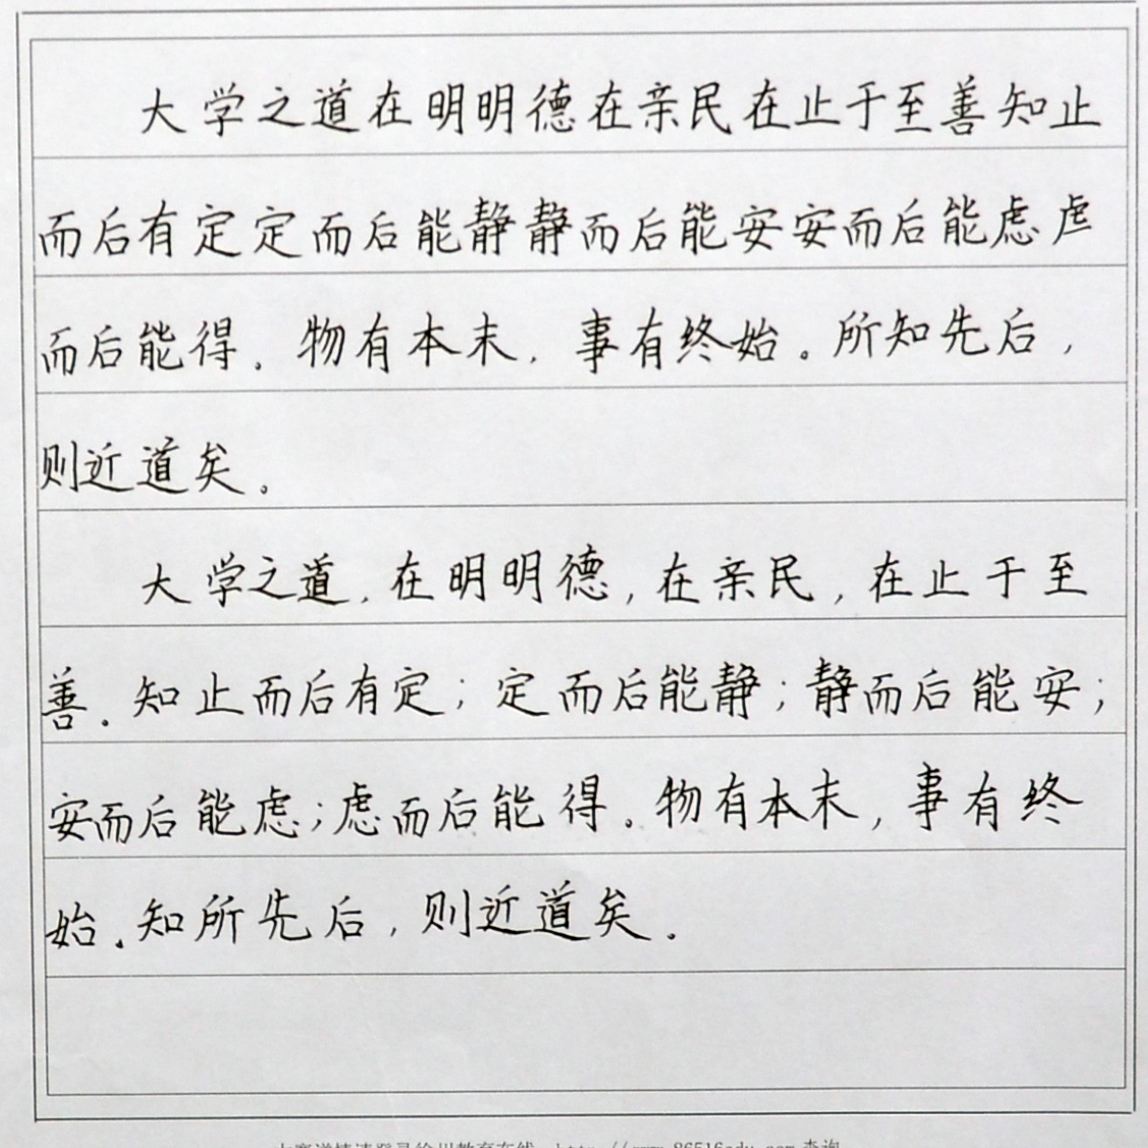 大学之道在明明德在亲民在止于至善知止
而后有定定而后能静静而后能安安而后能虑虑
而后能得。物有本末，事有终始。所知先后，
则近道矣。
大学之道，在明明德，在亲民，在止于至
善。知止而后有定；定而后能静；静而后能安；
安而后能虑；虑而后能得。物有本末，事有终
始。知所先后，则近道矣。